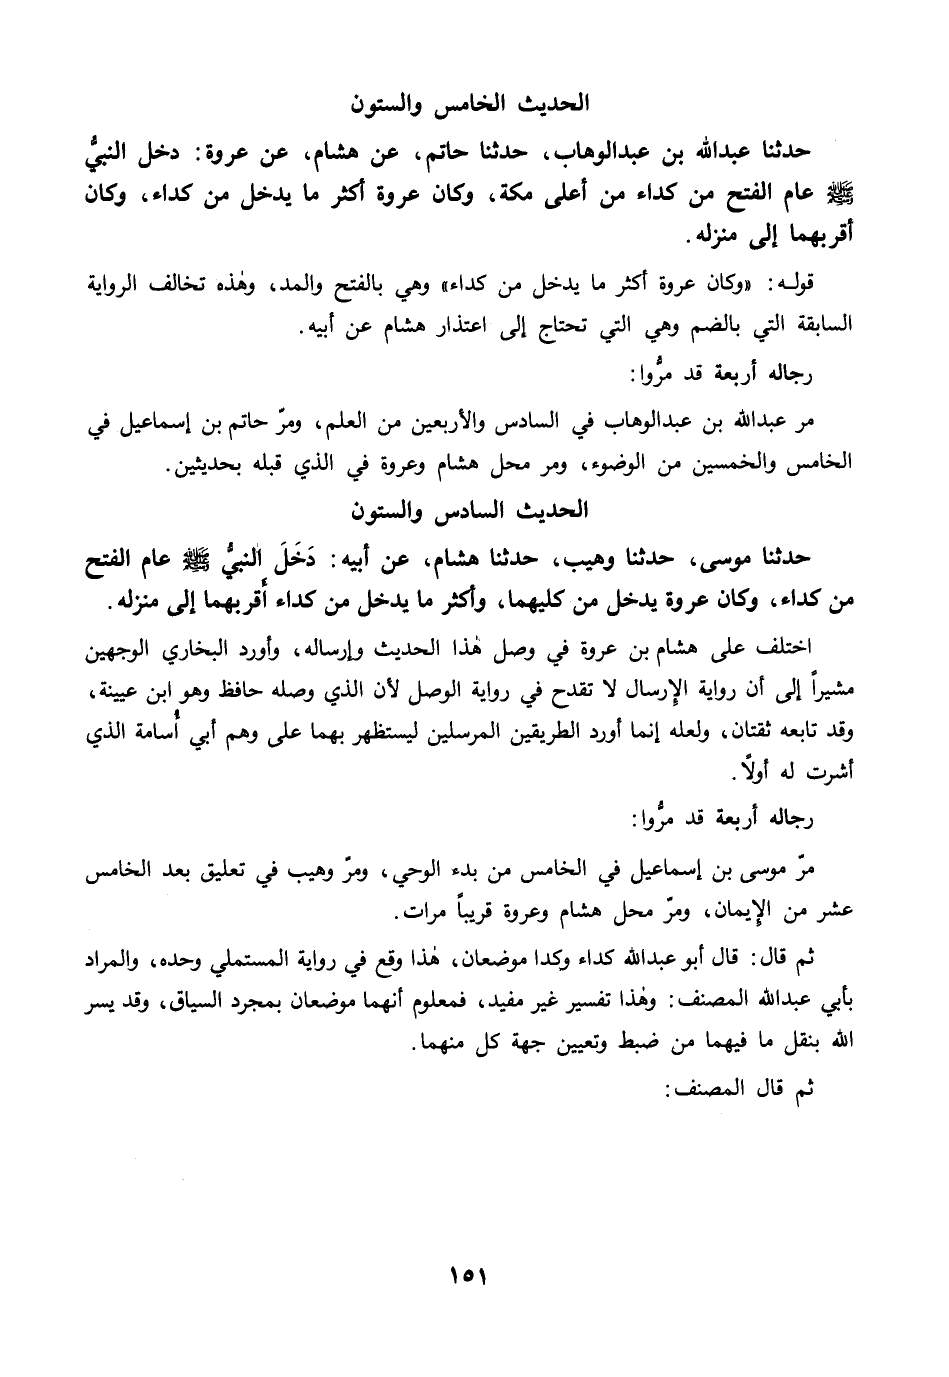 الحديث الخامس والستون
حدثنا عبدالله بن عبدالوهاب، حدثنا حاتم، عن هشام، عن عروة: دخل النبيُّ
ﷺ عام الفتح من كداء من أعلى مكة، وكان عروة أكثر ما يدخل من كداء، وكان
أقربهما إلى منزله.
قولـه: «وكان عروة أكثر ما يدخل من كداء» وهي بالفتح والمد، وهٰذه تخالف الرواية
السابقة التي بالضم وهي التي تحتاج إلى اعتذار هشام عن أبيه.
رجاله أربعة قد مرُّوا:
مر عبدالله بن عبدالوهاب في السادس والأربعين من العلم، ومرّ حاتم بن إسماعيل في
الخامس والخمسين من الوضوء، ومر محل هشام وعروة في الذي قبله بحديثين.
الحديث السادس والستون
حدثنا موسى، حدثنا وهيب، حدثنا هشام، عن أبيه: دَخَلَ النبيُّ ﷺ عام الفتح
من كداء، وكان عروة يدخل من كليهما، وأكثر ما يدخل من كداء أَقربهما إلى منزله.
اختلف على هشام بن عروة في وصل هٰذا الحديث وإرساله، وأورد البخاري الوجهين
مشيراً إلى أن رواية الإِرسال لا تقدح في رواية الوصل لأن الذي وصله حافظ وهو ابن عيينة،
وقد تابعه ثقتان، ولعله إنما أورد الطريقين المرسلين ليستظهر بهما على وهم أبي أُسامة الذي
أشرت له أولاً.
رجاله أربعة قد مرُّوا:
مرّ موسى بن إسماعيل في الخامس من بدء الوحي، ومرّ وهيب في تعليق بعد الخامس
عشر من الإِيمان، ومرّ محل هشام وعروة قريباً مرات.
ثم قال: قال أبو عبدالله كداء وكدا موضعان، هٰذا وقع في رواية المستملي وحده، والمراد
بأبي عبدالله المصنف: وهٰذا تفسير غير مفيد، فمعلوم أنهما موضعان بمجرد السياق، وقد يسر
الله بنقل ما فيهما من ضبط وتعيين جهة كل منهما.
ثم قال المصنف:
١٥١